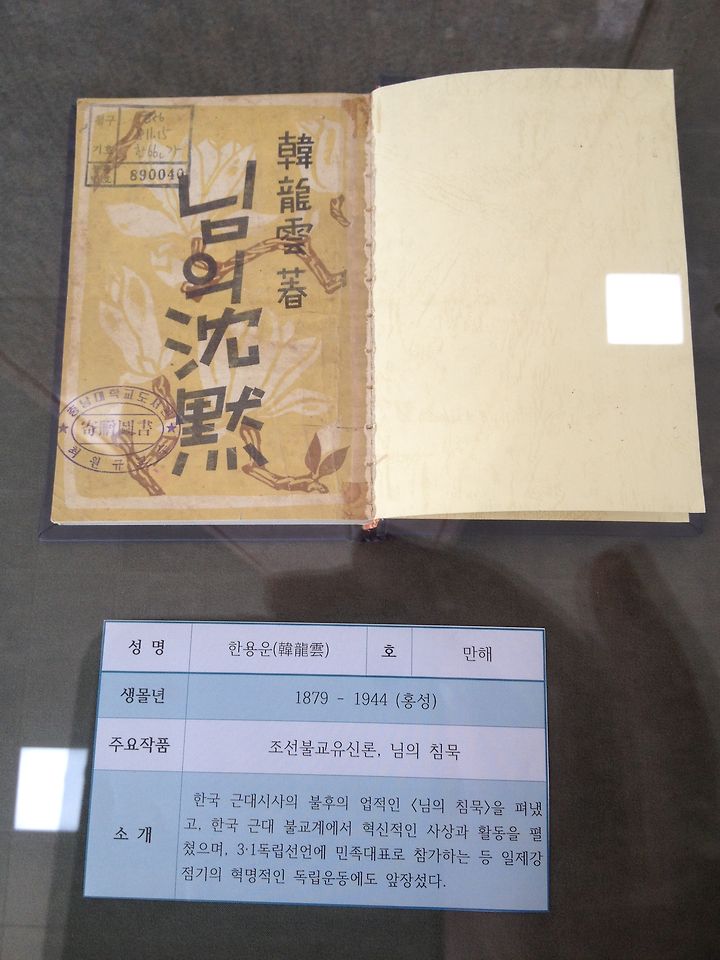 890040
韓龍雲 著
님의 沈默
寄贈圖書
성 명 한용운(韓龍雲) 호 만해
생몰년 1879 - 1944 (홍성)
주요작품 조선불교유신론, 님의 침묵
소 개
한국 근대시사의 불후의 업적인 <님의 침묵>을 펴냈
고, 한국 근대 불교계에서 혁신적인 사상과 활동을 펼
쳤으며, 3·1독립선언에 민족대표로 참가하는 등 일제강
점기의 혁명적인 독립운동에도 앞장섰다.